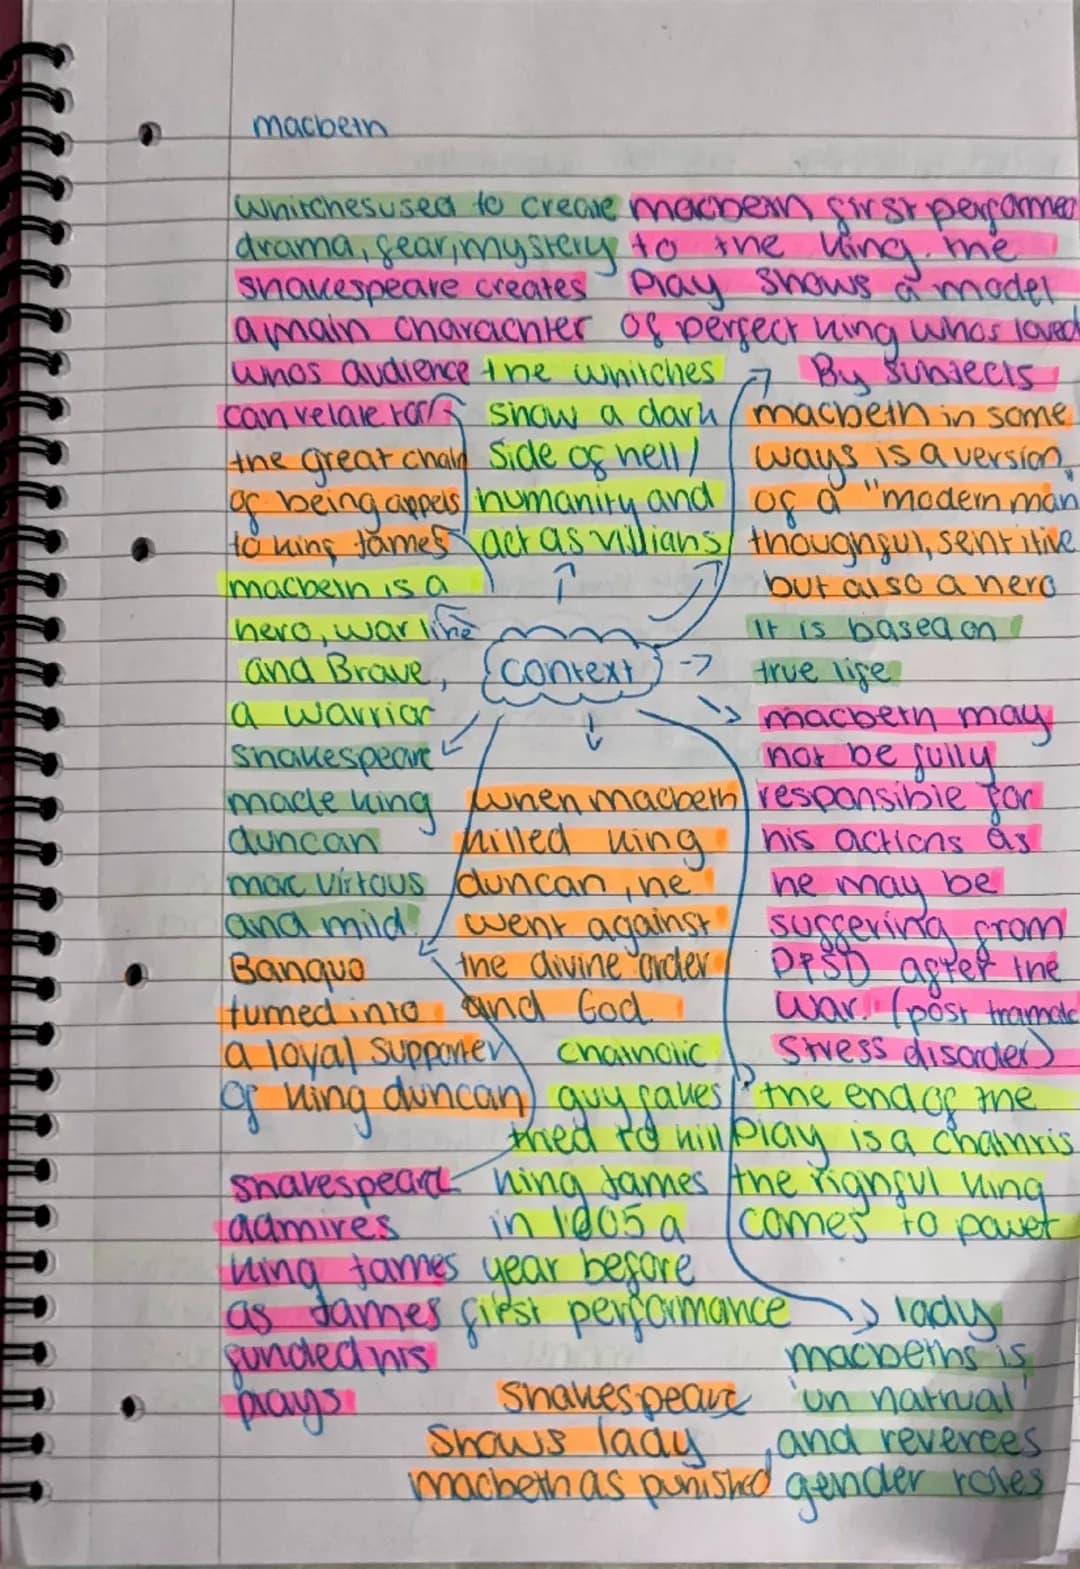 macbeth
whitchesused to create
drama, fear, mystery
macbeth first performed
to the king. the
Play shows a model
of perfect king whos loved
By subjects
shakespeare creates
a main charachter
whos audience
can relate to
the whitches
show a dark
side of hell/
humanity and
act as villians
the great chain
of being appels
to king James
macbeth in some
ways is a version
of a "modern man"
thoughful, sentitive
but also a hero
macbeth is a
hero, war like
and Brave,
a warrior
context
It is based on
true life
shakespeare
made king
duncan
more virtous
and mild
when macbeth
killed king
duncan, he
went against
the divine order
and God.
macbeth may
not be fully
responsible for
his actions as
he may be
suffering from
PTSD after the
war. (post
stress disorder)
Banquo
turned into
a loyal supporter
of king duncan
chatholic
guy fakes
tried to kill
king James
in 1605 a
year before
first performance
the end of the
play is a
the righful king
comes to power
shakespeare
admires
king James
as James
funded his
plays
shakespeare
shows lady
macbeth as punished
lady
macbeths is
'un natrual'
and reverces
gender roles